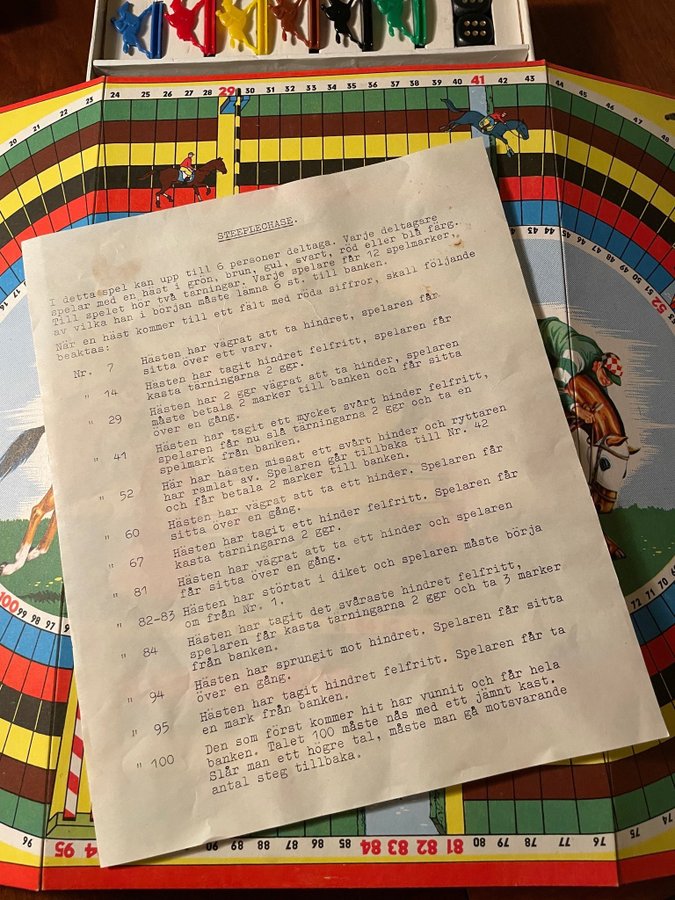 24 25 26 27 28 29 30 31 32 33 34 35 36 37 38 39 40 41 42 43 44
20
48
STEEPLECHASE.
I detta spel kan upp till 6 personer deltaga. Varje deltagare
spelar med en häst i grön, brun, gul, svart, röd eller blå färg.
Till spelet hör två tärningar. Varje spelare får 12 spelmarker,
av vilka han i början måste lämna 6 st. till banken.
När en häst kommer till ett fält med röda siffror, skall följande
beaktas:
Nr. 7 Hästen har vägrat att ta hindret, spelaren får
sitta över ett varv.
" 14 Hästen har tagit hindret felfritt, spelaren får
kasta tärningarna 2 ggr.
" 29 Hästen har 2 ggr vägrat att ta hinder, spelaren
måste betala 2 marker till banken och får sitta
över en gång.
" 41 Hästen har tagit ett mycket svårt hinder felfritt,
spelaren får nu slå tärningarna 2 ggr och ta en
spelmark från banken.
" 52 Här har hästen missat ett svårt hinder och ryttaren
har ramlat av. Spelaren går tillbaka till Nr. 42
och får betala 2 marker till banken.
" 60 Hästen har vägrat att ta ett hinder. Spelaren får
sitta över en gång.
" 67 Hästen har tagit ett hinder felfritt. Spelaren får
kasta tärningarna 2 ggr.
" 81 Hästen har vägrat att ta ett hinder och spelaren
får sitta över en gång.
" 82-83 Hästen har störtat i diket och spelaren måste börja
om från Nr. 1.
" 84 Hästen har tagit det svåraste hindret felfritt,
spelaren får kasta tärningarna 2 ggr och ta 3 marker
från banken.
" 94 Hästen har sprungit mot hindret. Spelaren får sitta
över en gång.
" 95 Hästen har tagit hindret felfritt. Spelaren får ta
en mark från banken.
" 100 Den som först kommer hit har vunnit och får hela
banken. Talet 100 måste nås med ett jämnt kast.
Slår man ett högre tal, måste man gå motsvarande
antal steg tillbaka.
52
100
96 95 94 84 83 82 81 80 79 78 77 76